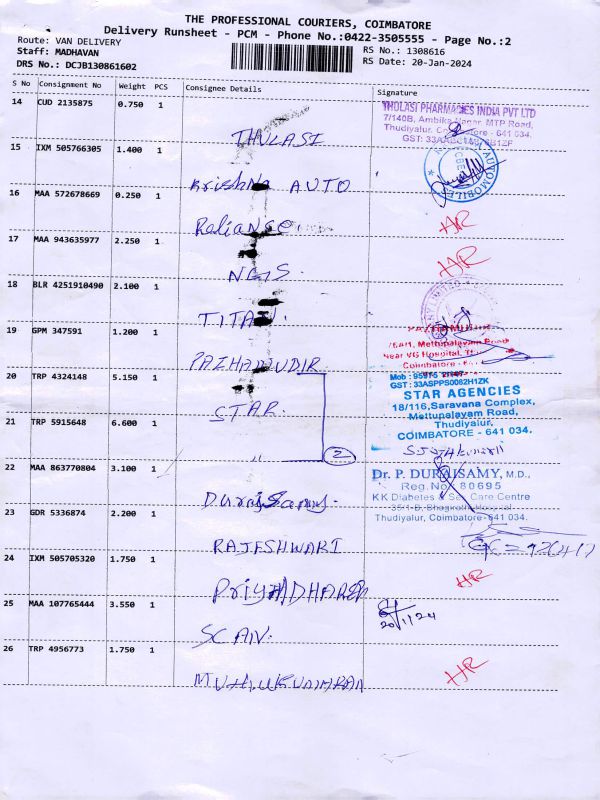 THE PROFESSIONAL COURIERS, COIMBATORE
Delivery Runsheet - PCM - Phone No.:0422-3505555 - Page No.:2
Route: VAN DELIVERY
Staff: MADHAVAN
RS No.: 1308616
DRS No.: DCJB130861602
RS Date: 20-Jan-2024
S No Consignment No Weight PCS Consignee Details Signature
14 CUD 2135875 0.750 1
THULASI
THULASI PHARMACIES INDIA PVT LTD
7/140B, Ambika Nagar, MTP Road,
Thudiyalur, Coimbatore - 641 034.
15 IXM 505766305 1.400 1
Krishna AUTO
AUTOMOBILES
16 MAA 572678669 0.250 1
Reliance.
HR
17 MAA 943635977 2.250 1
HR
18 BLR 4251910490 2.100 1
TITAN.
19 GPM 347591 1.200 1
PAZHAMUDIR
Mettupalayam Road
Near VG Hospital,
Coimbatore
20 TRP 4324148 5.150 1
STAR.
GST : 33ASPPS0082H1ZK
STAR AGENCIES
18/116, Saravana Complex,
Mettupalayam Road,
Thudiyalur,
COIMBATORE - 641 034.
21 TRP 5915648 6.600 1
2
22 MAA 863770804 3.100 1
Duraisamy.
Dr. P. DURAISAMY, M.D.,
Reg.No. 80695
KK Diabetes & Care Centre
Thudiyalur, Coimbatore-641 034.
23 GDR 5336874 2.200 1
RAJESHWARI
24 IXM 505705320 1.750 1
HR
25 MAA 107765444 3.550 1
SCAN.
20/1/24
26 TRP 4956773 1.750 1
HR